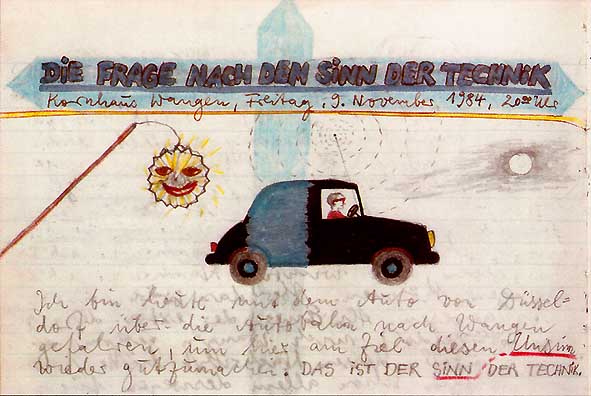 DIE FRAGE NACH DEM SINN DER TECHNIK
Kornhaus Wangen, Freitag, 9. November 1984, 20⁰⁰ Uhr
Ich bin heute mit dem Auto von Düssel=
dorf über die Autobahn nach Wangen
gefahren, um hier am Ziel diesen Unsinn
wieder gutzumachen. DAS IST DER SINN DER TECHNIK.